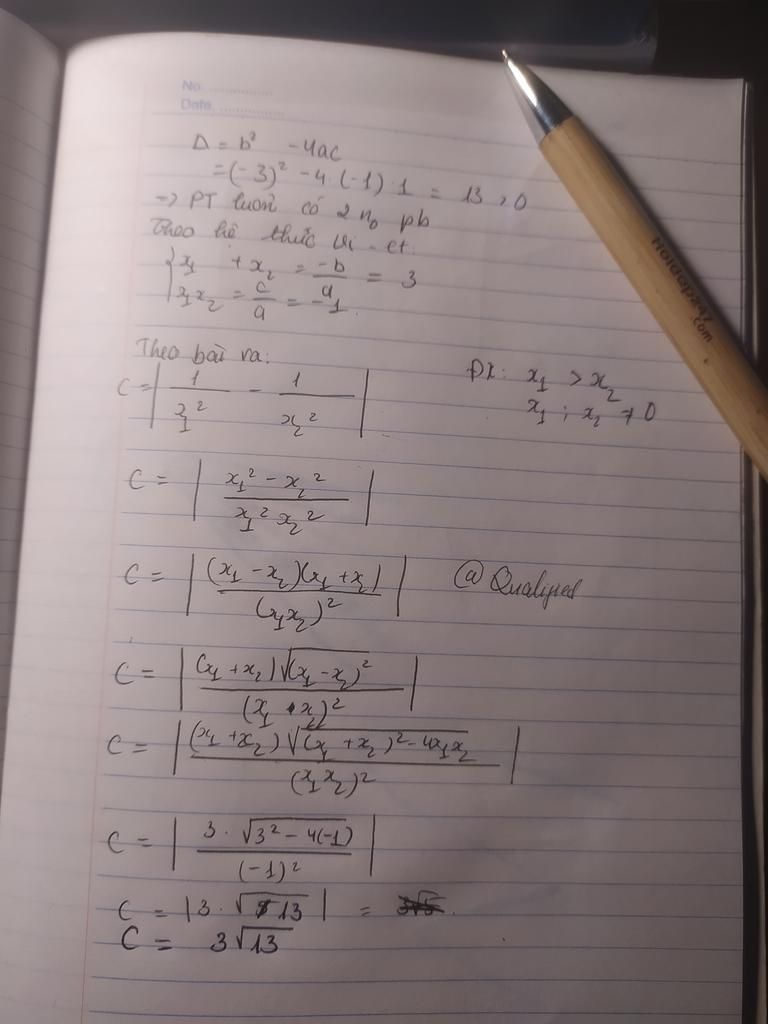 No. ..............
Date. ..............
Δ = b² - 4ac
= (-3)² - 4·(-1)·1 = 13 > 0
=> PT luôn có 2 n₀ pb
Theo hệ thức Vi-et:
{ x₁ + x₂ = -b/a = 3
x₁x₂ = c/a = -1
Theo bài ra:
C = | 1/x₁² - 1/x₂² |
ĐK: x₁ > x₂
x₁ ; x₂ ≠ 0
C = | (x₁² - x₂²)/(x₁² x₂²) |
C = | (x₁ - x₂)(x₁ + x₂)/(x₁x₂)² |
@
C = | (x₁ + x₂)√((x₁ - x₂)²)/(x₁ · x₂)² |
C = | (x₁ + x₂)√((x₁ + x₂)² - 4x₁x₂)/(x₁x₂)² |
C = | 3 · √(3² - 4(-1))/(-1)² |
C = |3 · √13| =
C = 3√13
Hoidap247
.com